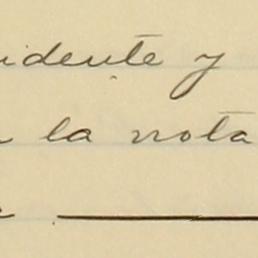 idente y
la nota